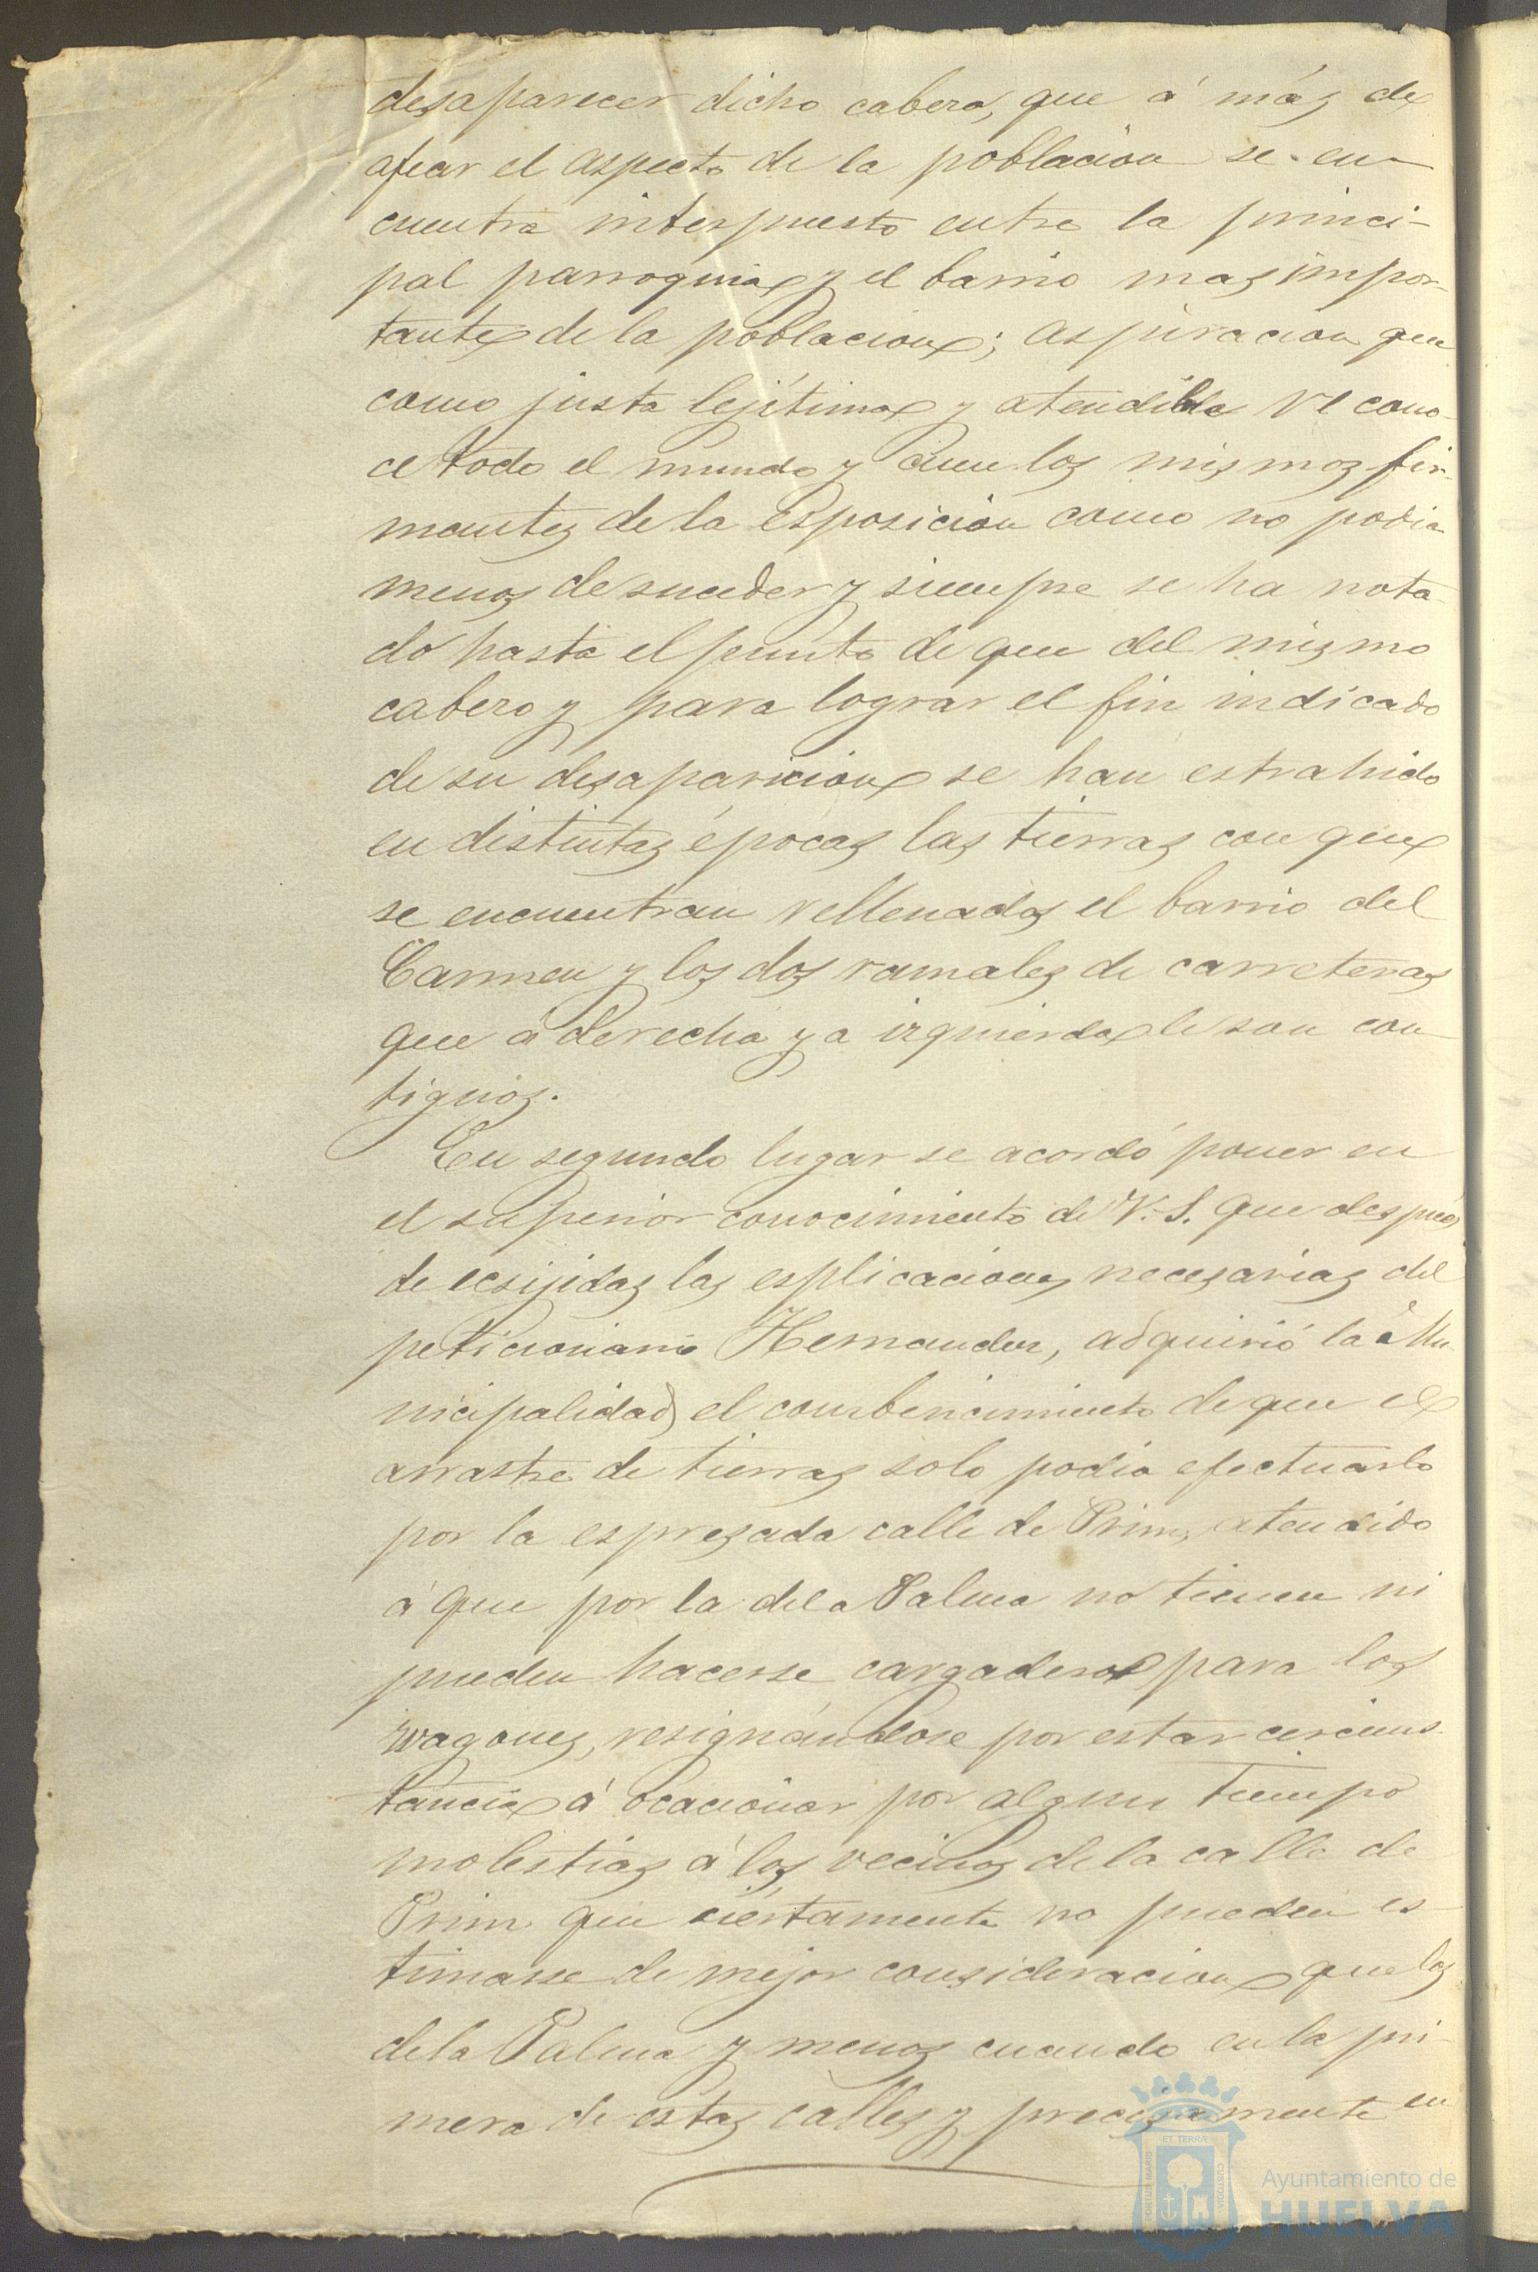 desaparecer dicho cabezo, que á más de
afear el aspecto de la poblacion se en-
cuentra interpuesto entre la princi-
pal parroquia y el barrio mas impor-
tante de la poblacion; aspiracion que
como justa lejítima y atendible recono-
ce todo el mundo y aun los mismos fir-
mantes de la esposición como no podia
menos de suceder y siempre se ha nota-
do hasta el punto de que del mismo
cabezo y para lograr el fin indicado
de su desaparicion se han estrahido
en distintas épocas las tierras con que
se encuentran rellenados el barrio del
Carmen y los dos ramales de carreteras
que á derecha y a izquierda le son con-
tiguos.
En segundo lugar se acordó poner en
el superior conocimiento de V. S. que despues
de ecsijidas las esplicaciones necesarias del
peticionario Hernandez, adquirió la Mu-
nicipalidad el combencimiento de que el
arrastre de tierras solo podia efectuarlo
por la espresada calle de Prim, atendido
á que por la de la Palma no tienen ni
pueden hacerse cargaderos para los
wagones, resignándose por estar circuns-
tancia á ocacionar por algun tiempo
molestias á los vecinos de la calle de
Prim que ciertamente no pueden es-
timarse de mejor consideracion que los
de la Palma y menos cuando en la pri-
mera de estas calles y precisamente en
ET TERRÆ
PORTUS MARIS
CUSTODIA
Ayuntamiento de
HUELVA